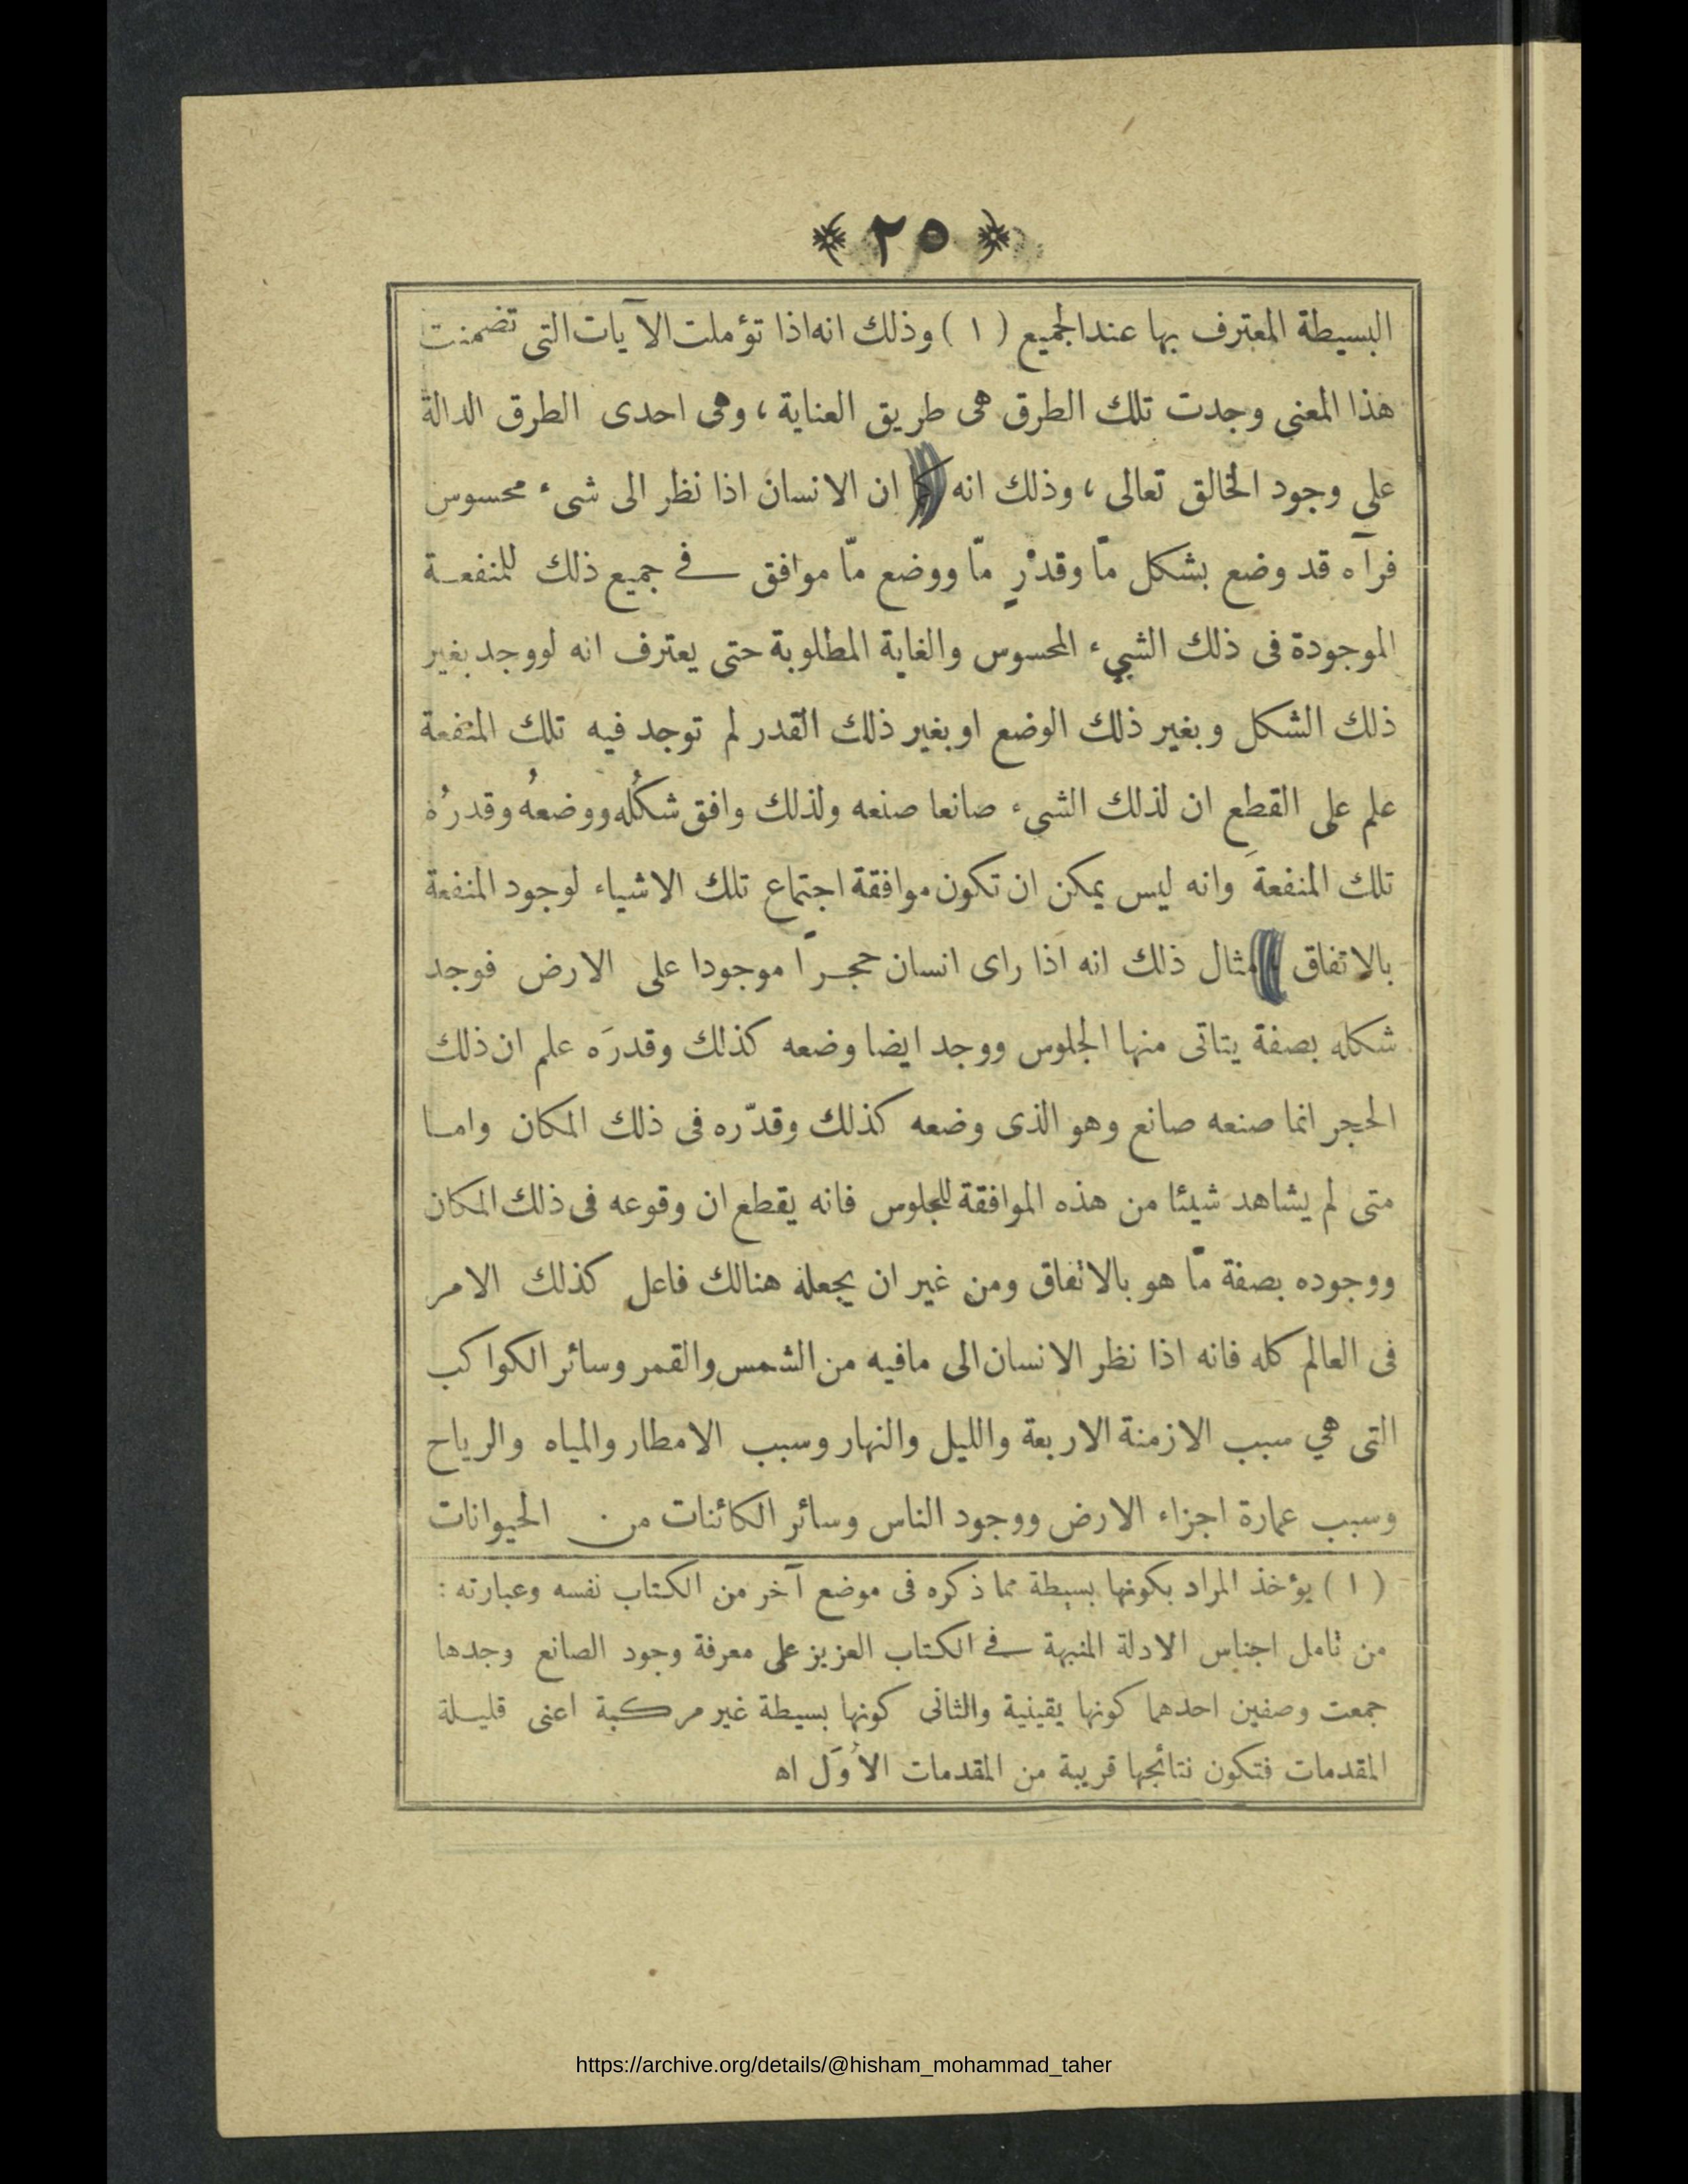 ﴿ ٢٥ ﴾
البسيطة المعترف بها عند الجميع ( ١ ) وذلك انه اذا تؤملت الآيات التى تضمنت
هذا المعنى وجدت تلك الطرق هى طريق العناية ، وهى احدى الطرق الدالة
على وجود الخالق تعالى ، وذلك انه كما ان الانسان اذا نظر الى شىء محسوس
فرآه قد وضع بشكل مّا وقدْرٍ مّا ووضع مّا موافق في جميع ذلك للمنفعة
الموجودة فى ذلك الشيء المحسوس والغاية المطلوبة حتى يعترف انه لو وجد بغير
ذلك الشكل وبغير ذلك الوضع او بغير ذلك القدر لم توجد فيه تلك المنفعة
علم على القطع ان لذلك الشىء صانعا صنعه ولذلك وافق شكلُه ووضعهُ وقدرُه
تلك المنفعةَ وانه ليس يمكن ان تكون موافقة اجتماع تلك الاشياء لوجود المنفعة
بالاتفاق مثال ذلك انه اذا راى انسان حجراً موجودا على الارض فوجد
شكله بصفة يتاتى منها الجلوس ووجد ايضا وضعه كذلك وقدرَه علم ان ذلك
الحجر انما صنعه صانع وهو الذى وضعه كذلك وقدّره فى ذلك المكان واما
متى لم يشاهد شيئا من هذه الموافقة للجلوس فانه يقطع ان وقوعه فى ذلك المكان
ووجوده بصفة مّا هو بالاتفاق ومن غير ان يجعله هنالك فاعل كذلك الامر
فى العالم كله فانه اذا نظر الانسان الى مافيه من الشمس والقمر وسائر الكواكب
التى هي سبب الازمنة الاربعة والليل والنهار وسبب الامطار والمياه والرياح
وسبب عمارة اجزاء الارض ووجود الناس وسائر الكائنات من الحيوانات
( ١ ) يؤخذ المراد بكونها بسيطة مما ذكره فى موضع آخر من الكتاب نفسه وعبارته :
من تامل اجناس الادلة المنبهة في الكتاب العزيز على معرفة وجود الصانع وجدها
جمعت وصفين احدهما كونها يقينية والثانى كونها بسيطة غير مركبة اعنى قليلة
المقدمات فتكون نتائجها قريبة من المقدمات الأوَل اه
https://archive.org/details/@hisham_mohammad_taher